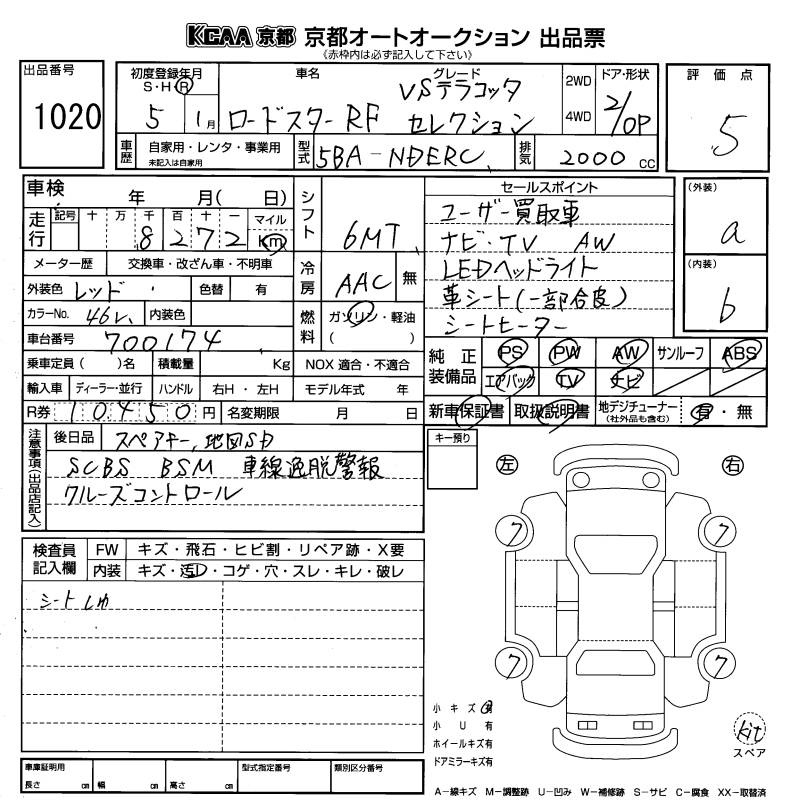 KCAA 京都 京都オートオークション 出品票
《赤枠内は必ず記入して下さい》
出品番号
1020
初度登録年月
S・H・R
5 1月
車名
ロードスターRF
グレード
VSテラコッタ
セレクション
2WD
4WD
ドア・形状
2/OP
車歴
自家用・レンタ・事業用
未記入は自家用
型式
5BA-NDERC
排気
2000 CC
評価点
5
車検 年 月( 日)
走行
記号 十 万 千 百 十 一 マイル
8 2 7 2 Km
メーター歴 交換車・改ざん車・不明車
外装色 レッド 色替 有
カラーNo. 46V 内装色
車台番号 700174
乗車定員( )名 積載量 Kg
輸入車 ディーラー・並行 ハンドル 右H・左H
R券 10450円 名変期限 月 日
シフト 6MT
冷房 AAC 無
燃料 ガソリン・軽油
( )
NOX 適合・不適合
モデル年式 年
セールスポイント
ユーザー買取車
ナビ・TV AW
LEDヘッドライト
革シート(一部合皮)
シートヒーター
(外装)
a
(内装)
b
純正装備品
PS PW AW サンルーフ ABS
エアバック TV ナビ
新車保証書 取扱説明書 地デジチューナー(社外品も含む) 有・無
注意事項(出品店記入)
後日品 スペアキー,地図SD
SCBS BSM 車線逸脱警報
クルーズコントロール
キー預り
左
右
検査員記入欄
FW キズ・飛石・ヒビ割・リペア跡・X要
内装 キズ・汚レ・コゲ・穴・スレ・キレ・破レ
シートしわ
7
7
7
7
小キズ有
小U有
ホイールキズ有
ドアミラーキズ有
kit
スペア
車庫証明用
長さ cm 幅 cm 高さ cm
型式指定番号
類別区分番号
A-線キズ M-調整跡 U-凹み W-補修跡 S-サビ C-腐食 XX-取替済